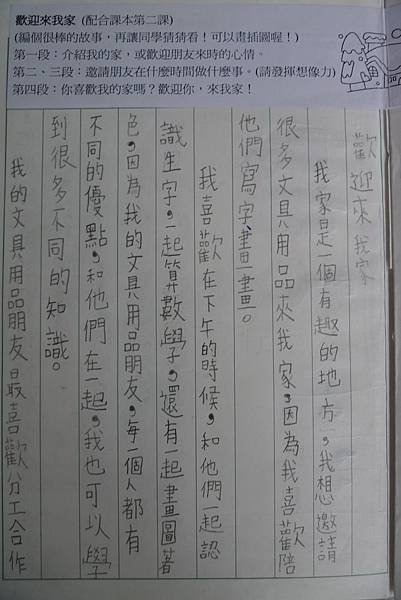 歡迎來我家 (配合課本第二課)
(編個很棒的故事，再讓同學猜猜看！可以畫插圖喔！)
第一段：介紹我的家，或歡迎朋友來時的心情。
第二、三段：邀請朋友在什麼時間做什麼事。(請發揮想像力)
第四段：你喜歡我的家嗎？歡迎你，來我家！
歡迎來我家
我家是一個有趣的地方，我想邀請
很多文具用品來我家，因為我喜歡陪
他們寫字、畫畫。
我喜歡在下午的時候，和他們一起認
識生字，一起算數學，還有一起畫圖著
色，因為我的文具用品朋友，每一個人都有
不同的優點，和他們在一起，我也可以學
到很多不同的知識。
我的文具用品朋友最喜歡分工合作